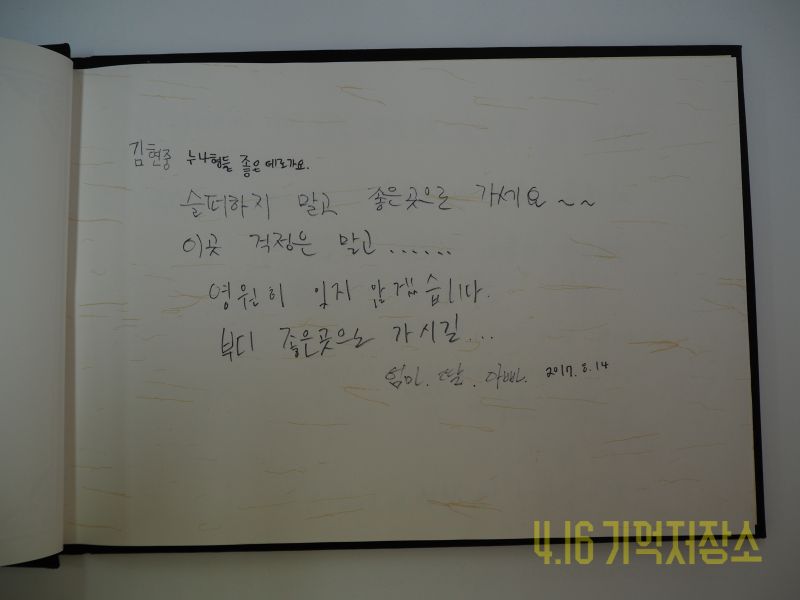 김현중 누나형들 좋은데로가요.
슬퍼하지 말고 좋은곳으로 가세요~~
이곳 걱정은 말고......
영원히 잊지 않겠습니다.
부디 좋은곳으로 가시길...
엄마. 딸. 아빠. 2017. 8. 14
4.16 기억저장소